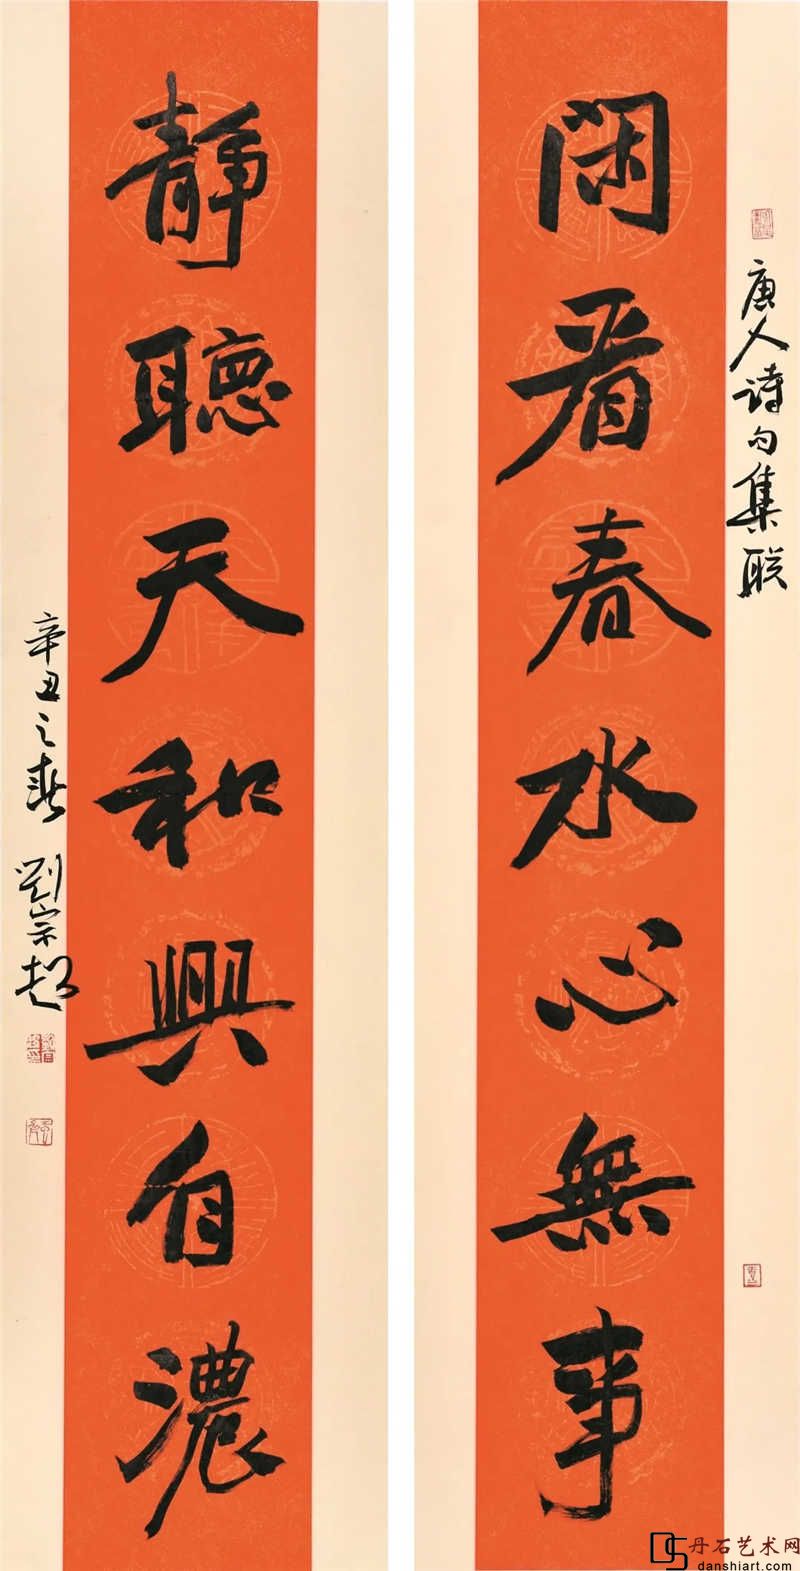 唐人诗句集联
閑看春水心無事
靜聽天和興自濃
辛丑之春 劉宗超
DS 丹石艺术网
danshiart.com